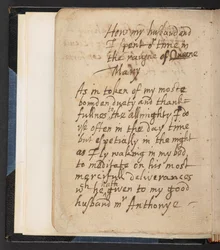 How my husband and
I spent ye time in
the raigne of Queene
Mary
As in token of my moste
bownden duety and thank-
fullnes to the allmighty I do
use often in the day time
but espetially in the night
as I ly waking in my bed
to meditate on his most
mercifull deliverances
wh he hath given to my good
husband mr Anthonye